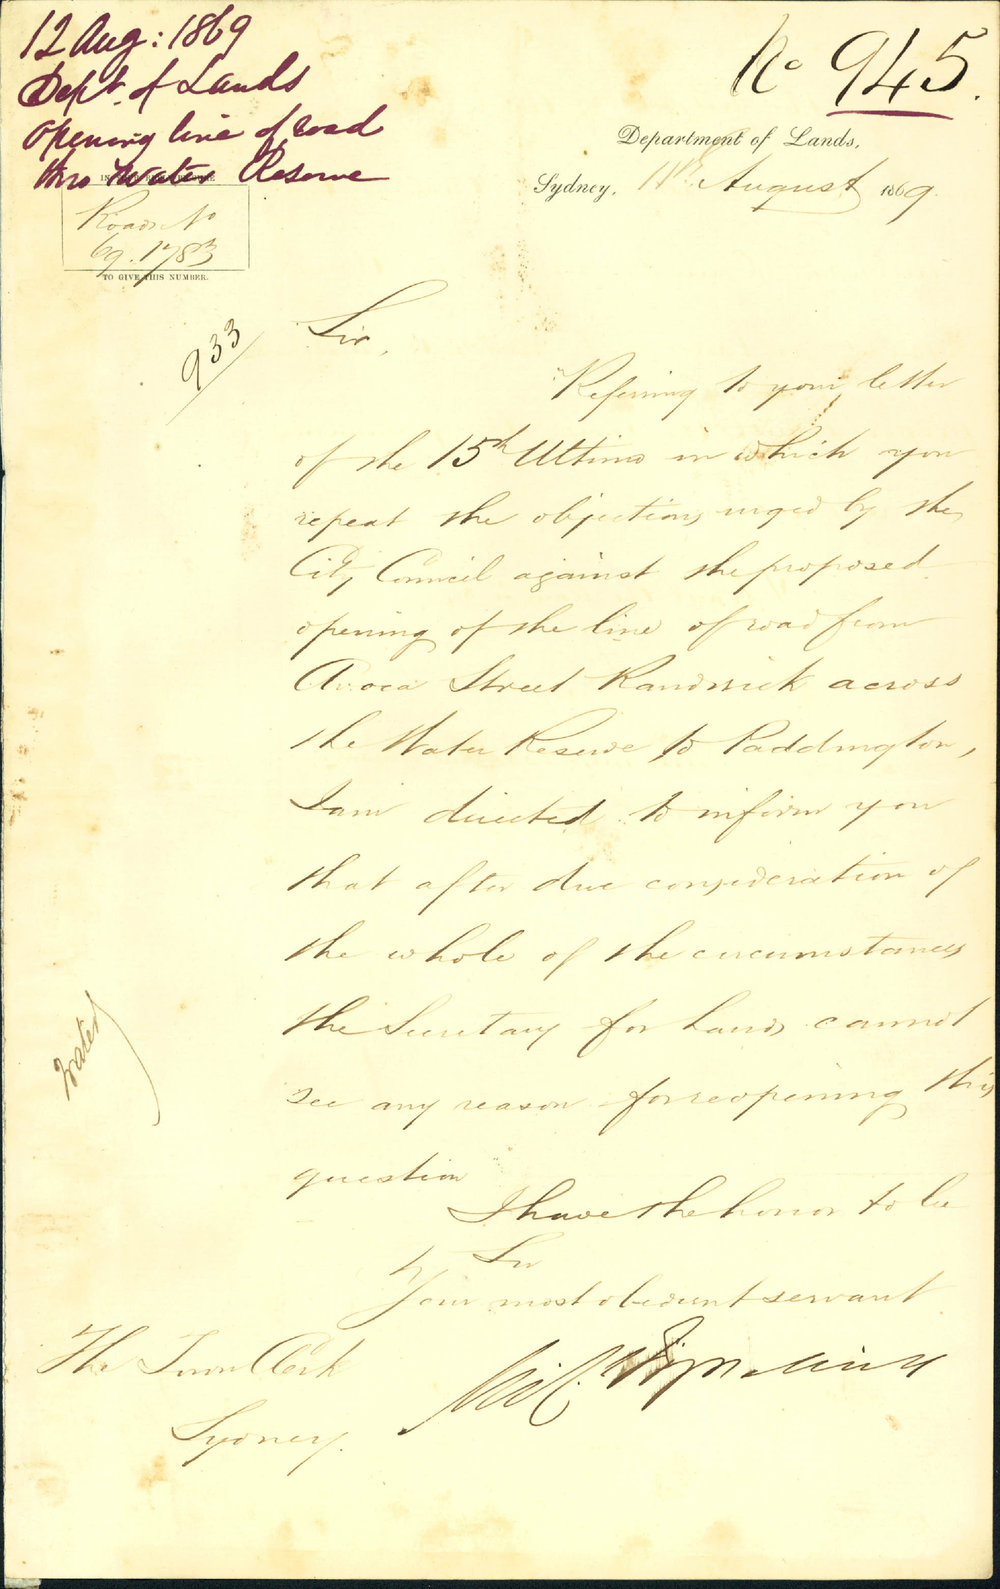 12 Aug: 1869
Dept. of Lands
opening line of road
thro Water Reserve
No 945.
Department of Lands,
Sydney, 11th August 1869.
Roads No
69.1783
TO GIVE THIS NUMBER.
933
Sir,
Referring to your letter
of the 15th Ultimo in which you
repeat the objections urged by the
City Council against the proposed
opening of the line of road from
Avoca Street Randwick across
the Water Reserve to Paddington,
I am directed to inform you
that after due consideration of
the whole of the circumstances
the Secretary for Lands cannot
see any reason for reopening this
question
I have the honor to be
Sir
Your most obedient servant
The Town Clerk
Sydney.
Water